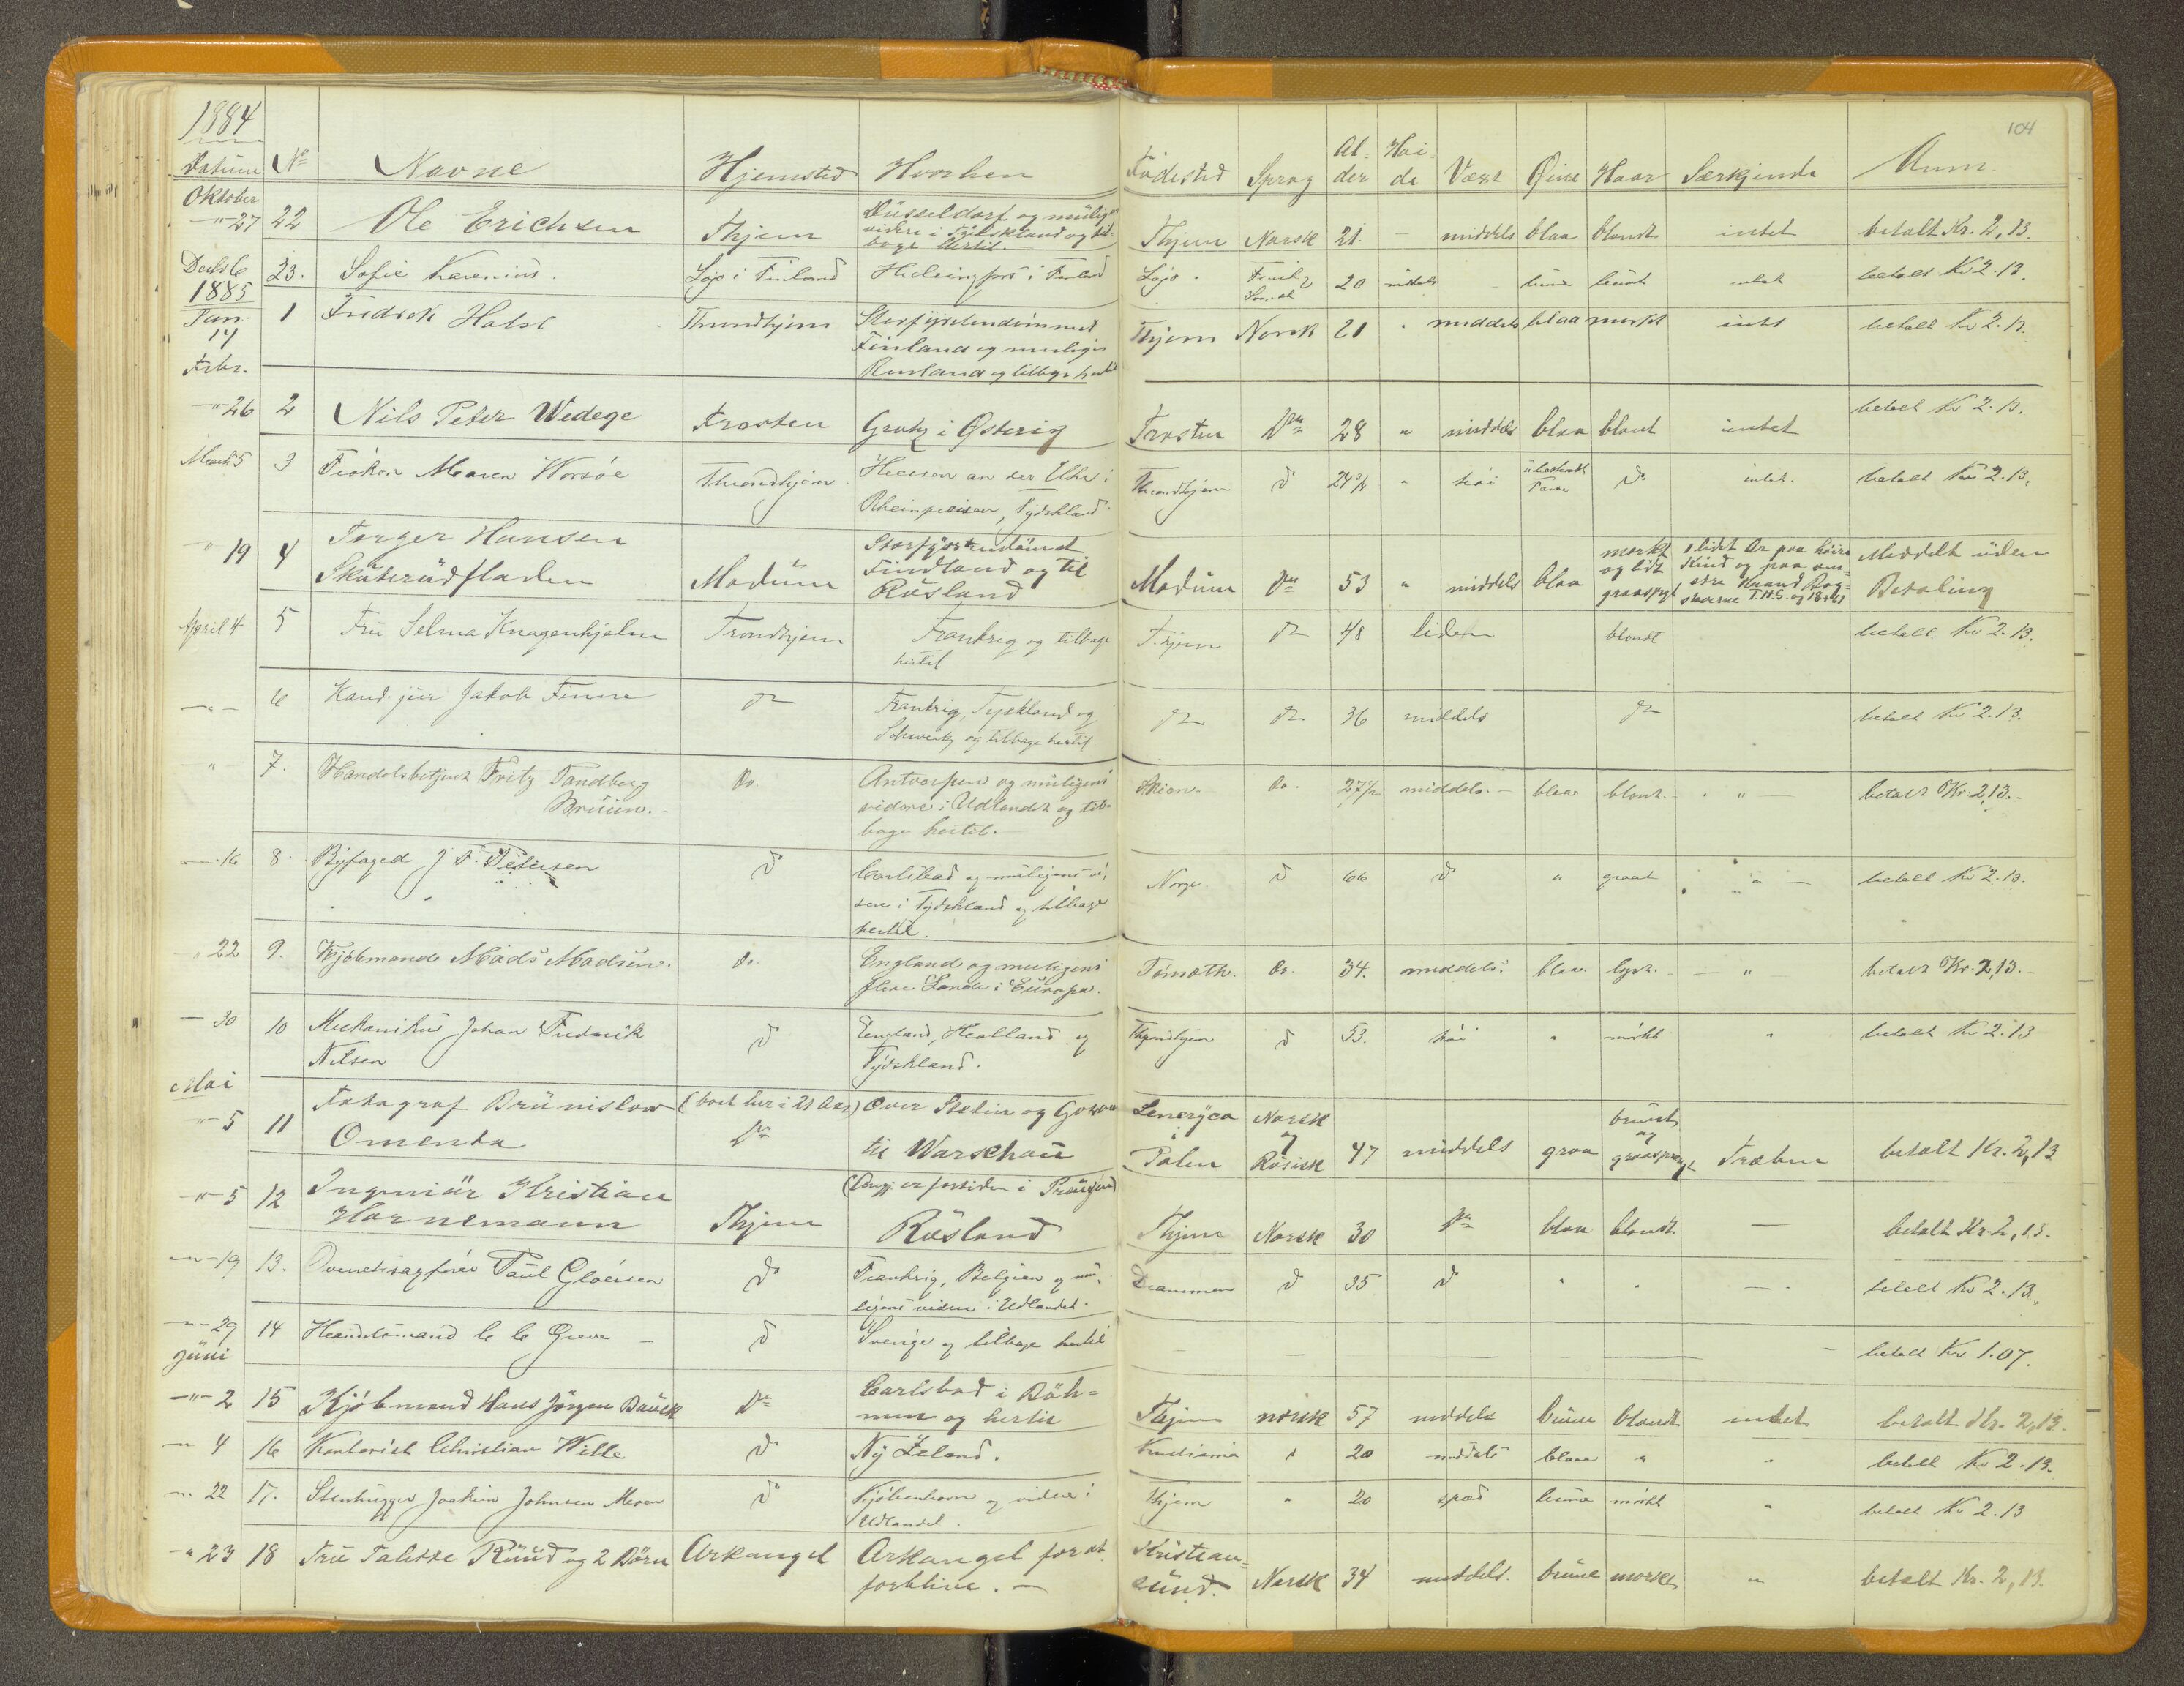 1884
Datum No Navne Hjemsted Hvorhen Födested Sprog Al-der Höi-de Væxt Öine Haar Særkjende Anm.
104
Oktober
-"-27 22 Ole Erichsen Thjem Düsseldorf og mülig
videre i Tyskland og til-
bage hertil. Thjem Norsk 21. - middels blaa blondt intet betalt Kr. 2,13.
Decbr 6 23. Sofie Karenius. Lojo i Finland Helsingfors i Finland Lojo. Finsk
Svensk 20 middels brune intet betalt Kr 2.13.
1885
Jan. 17 1 Fredrik Holst Trondhjem Storfyrstendömmet
Finland og muligis
Rusland og tilbage hertil Thjem Norsk 21 " middels blaa morkt intet betalt Kr 2.13.
Febr.
-"-26 2 Nils Peter Wedege Frosten Gratz i Østerig Frosten Do 28 " middels blaa blont intet betalt Kr 2.13.
Marts 5 3 Fröken Maren Worsöe Throndhjem. Throndhjem d 24 1/2 " höi übestemt
Farve do intet. betalt Kr 2.13.
Rheinpreisen, Tydskland.
" 19 4 Torger Hansen
Skuterüdfladen Modüm Storfyrstendömet
Findland og til
Rüsland Modüm Do 53 " middels blaa morkt
og lidt
graaspr 1 lidet Ar paa höire
Kind og paa
Haand Bog-
staverne T.H.S. og Meddelt üden
Betaling
April 4 5 Frü Selma Knagenhjelm Trondhjem Frankrig og tilbage
hertil T.hjem do 48 liden blondt betalt Kr 2.13.
-"- 6 Kand. jür Jakob Finne do Frankrig, Tyskland og
Schweitz og tilbage hertil do do 36 middels do betalt Kr 2.13.
" 7. Handelsbetjent Fritz Tandberg
Brüün. Do. Antverpen og müligens
videre i Udlandet og til-
bage hertil. Skien. Do. 27 1/2 middels. - blaa blont. " betalt Kr. 2,13.-
-16 8. Byfoged J F. Petersen do Carlsbad og müligens vi-
dere i Tydskland og tilbage
hertil. Norge. d 66 do " graat " betalt Kr 2.13.
" 22 9. Kjöbmand Mads Madsen. Do. England og muligens
flere Lande i Europa. Do. 34. middels. blaa lyst. - " betalt Kr. 2,13.-
- 30 10 Mechanikus Johan Frederik
Nilsen do England, Holland og
Tydskland. Throndhjem d 53. höi " mörkt " betalt Kr 2.13
Mai
-"-5 11 Fotograf Brünislow
Omenta (boet her i 21 Aar)
Do Over Stetin og
til Warschaü
i
Polen Norsk
og
Rüsisk 47 middels graa brünt
og
graasprængt Træben betalt Kr. 2,13
-"-5 12 Ingeniör Kristian
Hornemann Thjem (Angj. er fortiden i
Rüsland Thjem Norsk 30 Do blaa blondt - betalt Kr. 2,13.
-"-19 13. Overretssagförer Paul Glöersen do Frankrig, Belgien og mü-
ligens videre i Udlandet. Drammen d 35 do " " - betalt Kr 2.13.
-"-29 14 Handelsmand C C Greve - do Sverige og tilbage hertil - - - - - - - - betalt Kr 1.07.
Jüni
-"-2 15 Kjöbmand Hans Jörgen Bauck Do Carlsbad i Böh-
men og hertil Thjem norsk 57 middels brüne blondt intet betalt Kr. 2,13.
-" 4 16 Kontorist Christian Wille do Ny Zeland. Kristiania " 20 middels blaa " " betalt Kr 2.13.
-" 22 17. Stenhugger Joakim Johnsen Moen do Kjöbenhavn og videre i
Udlandet. Thjem " 20 spæd brune mörkt " betalt Kr 2.13
-" 23 18 Frü Talette Rüüd og 2 Börn Arkangel Arkangel for at
forblive. - Kristian-
sünd. Norsk 34 middels. brüne morkt " betalt Kr. 2,13.